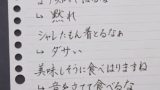 ↳ 黙れ
シャレたもん着とるなぁ
↳ ダサい
美味しそうに食べはりますね
↳ 音をさせて食べるな